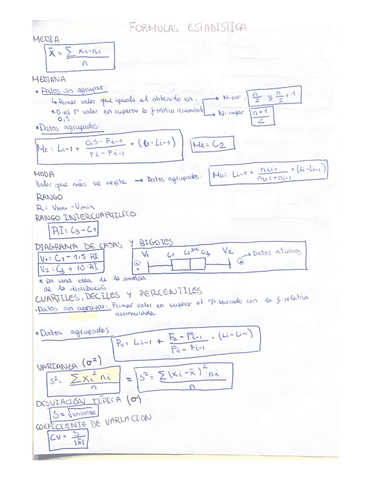 FORMULAS ESTADISTICA
MEDIA
X̄ = ∑ xi·ni / n
MEDIANA
• Datos sin agrupar:
↳ Primer valor que iguale el obtenido en: → N par: n/2 y n/2 + 1
→ N impar: n+1 / 2
• O el 1º valor en superar la f relativa acumulada
0,5
• Datos agrupados:
Me = Li-1 + 0,5 - Fi-1 / Fi - Fi-1 · (Li - Li-1)
Me = C2
MODA
Valor que más se repite → Datos agrupados: Mo = Li-1 + ni+1 / ni+1 + ni-1 · (Li - Li-1)
RANGO
R = Vmax - Vmin
RANGO INTERCUARTILICO
RI = C3 - C1
DIAGRAMA DE CAJAS Y BIGOTES
V1 = C1 - 1,5 RI
V2 = C3 + 1,5 · RI
V1 C1 C3 V2 → Datos atípicos
* Da una idea de la simetría
de la distribución
CUARTILES, DECILES Y PERCENTILES
• Datos sin agrupar: Primer valor en superar el % buscado con la f relativa
acumulada
• Datos agrupados
(Li - Li-1)
VARIANZA (σ²)
S² = ∑ xi² ni / n = S² = ∑ (xi - x̄)² ni / n
DESVIACIÓN TÍPICA (σ)
S = √varianza
COEFICIENTE DE VARIACION
CV = S / |x̄|